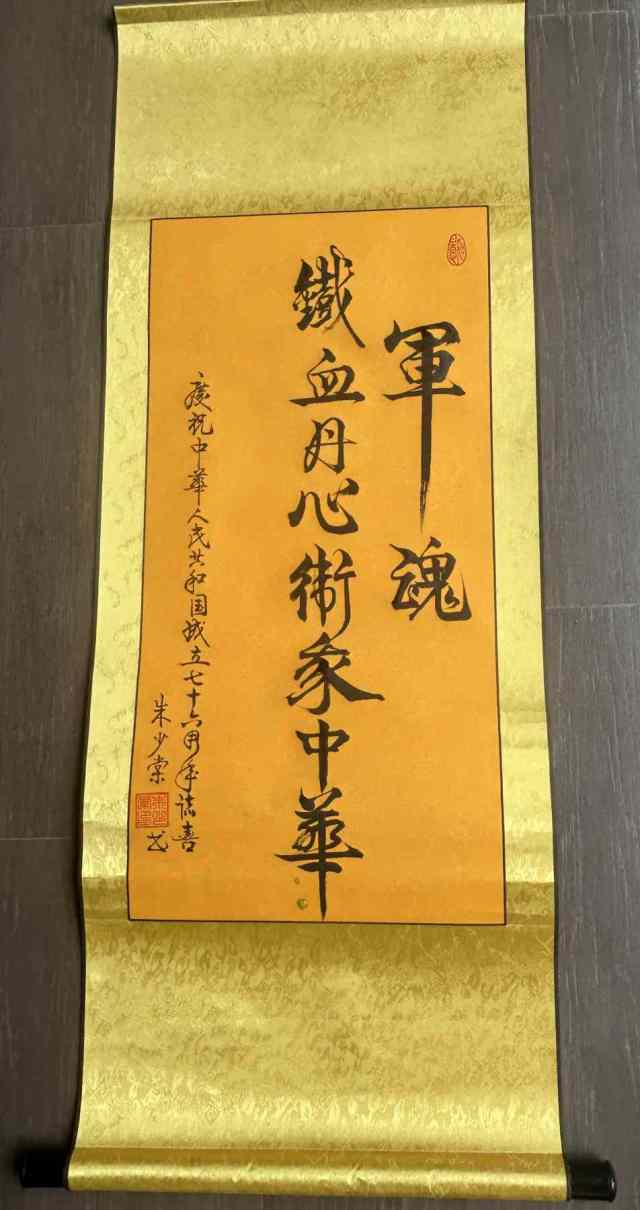 軍魂
鐵血丹心衛家中華
慶祝中華人民共和国成立七十六周年誌喜
朱少棠
书